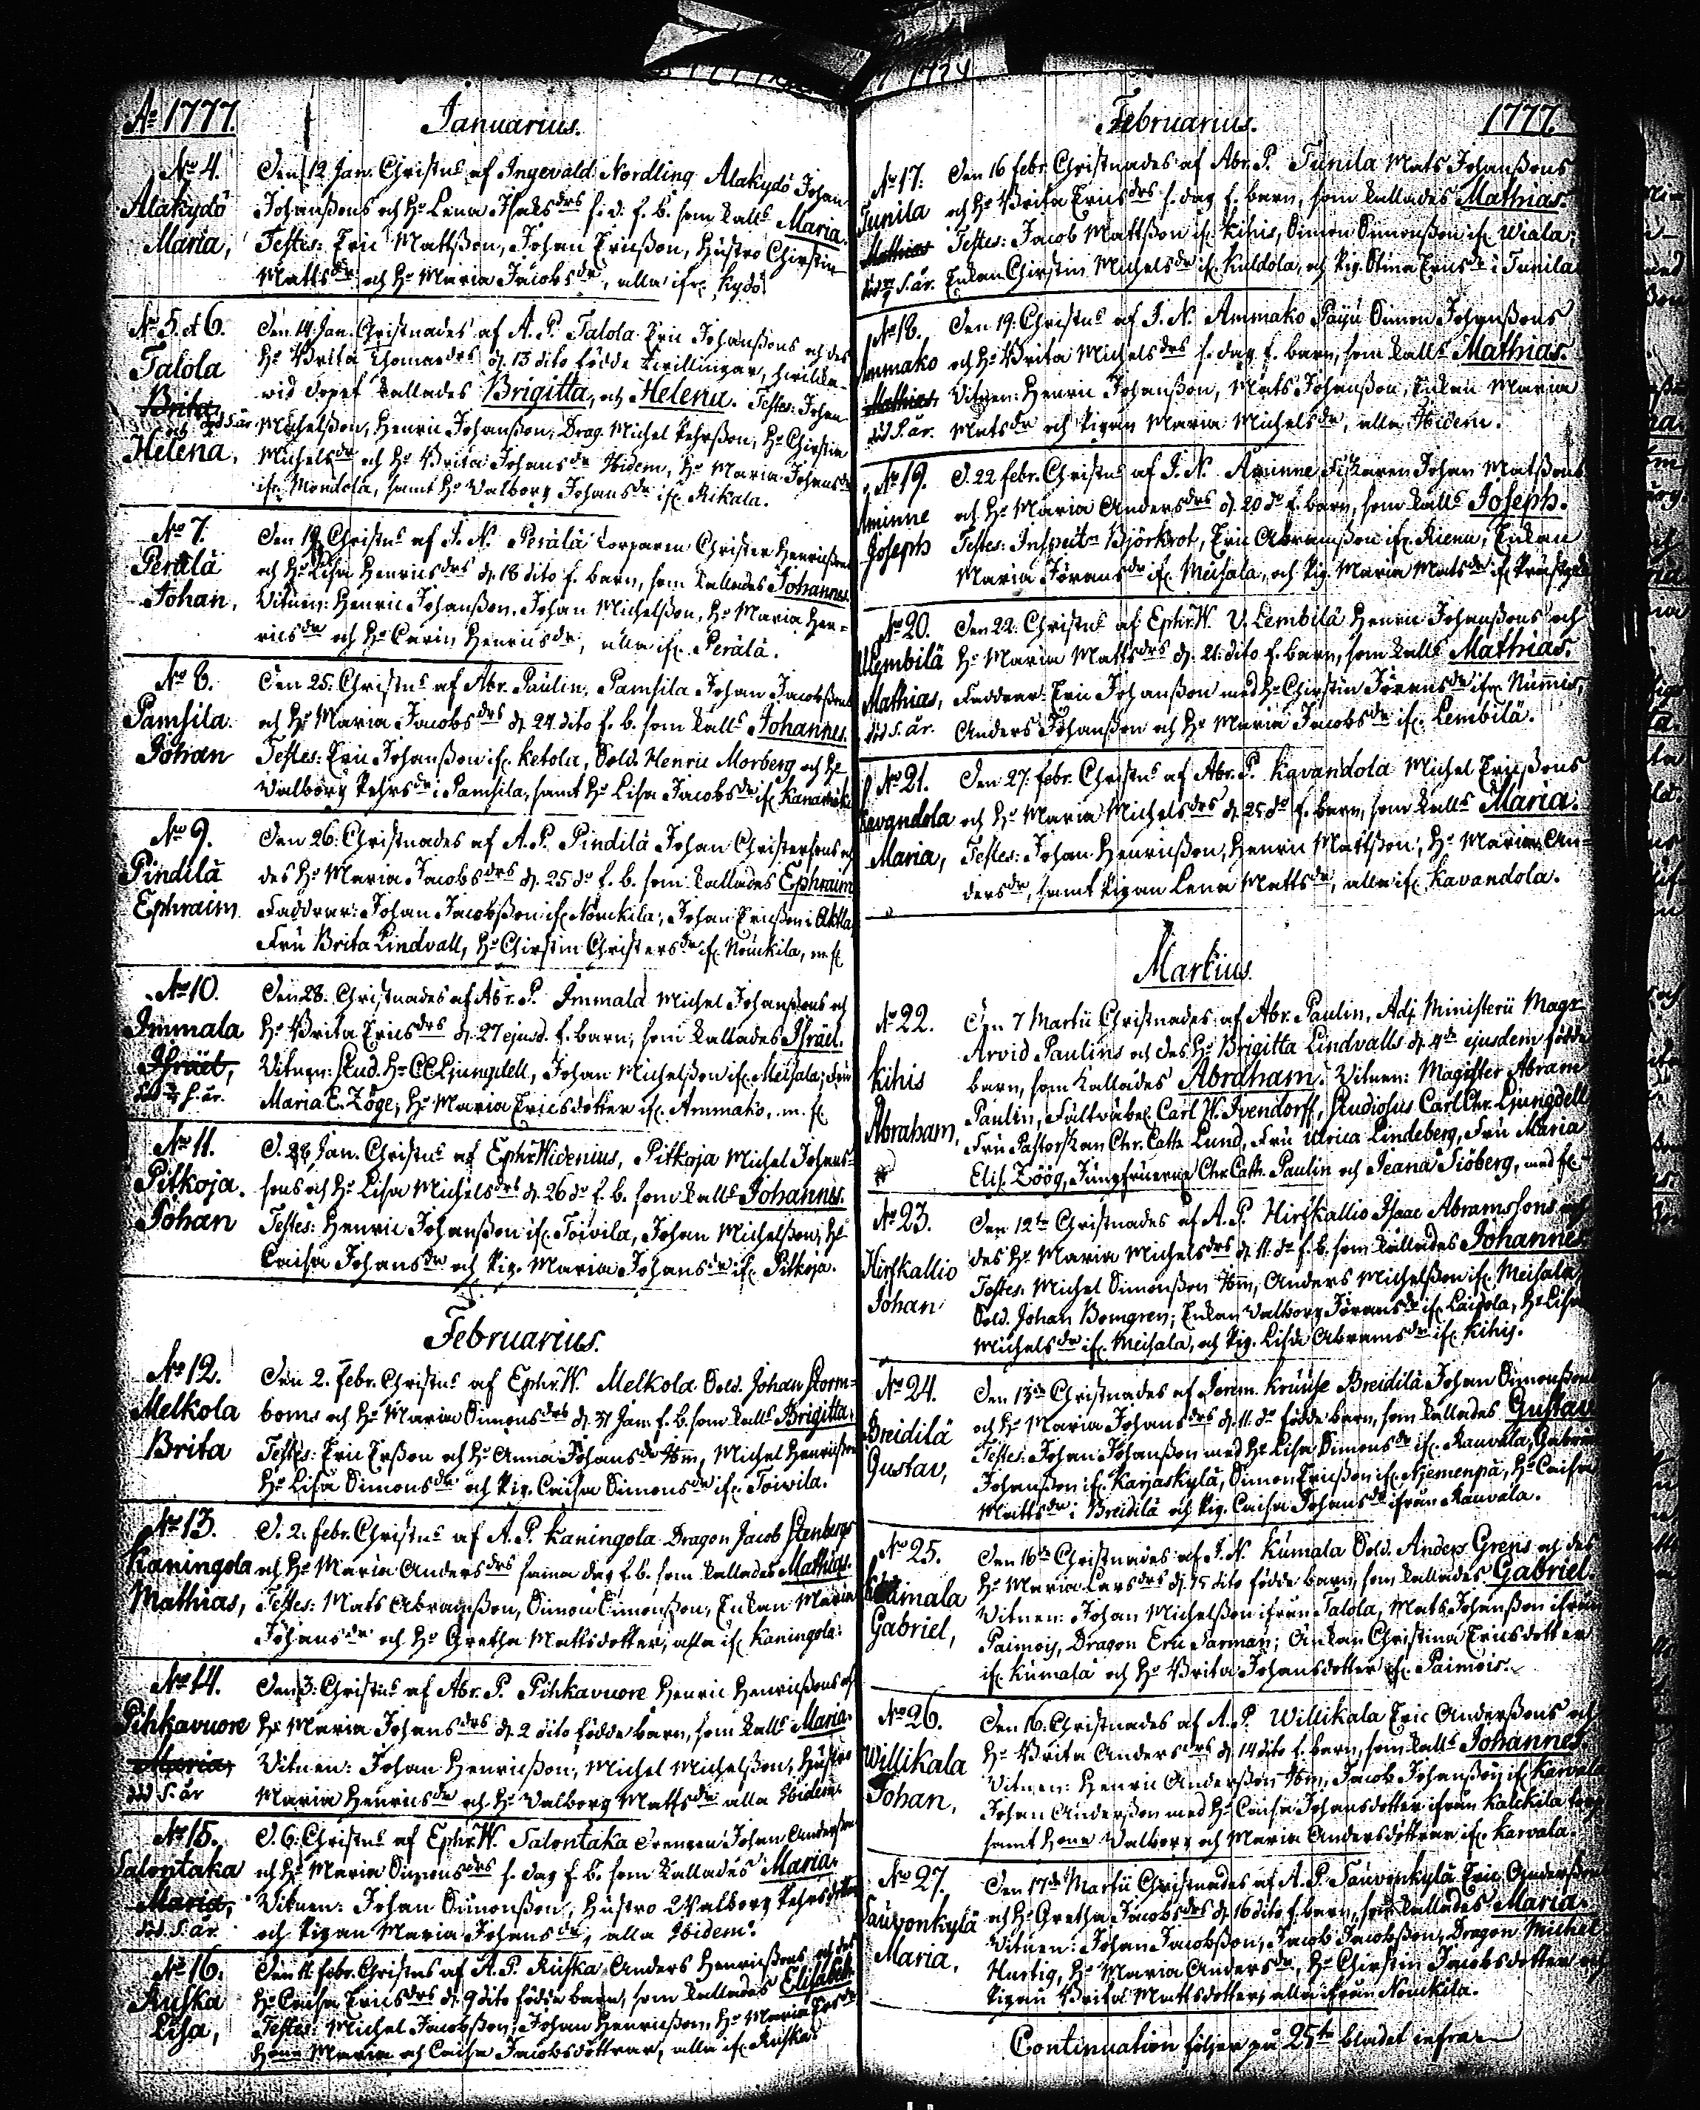 Ao 1777.
Januarius.
No 4.
Alakydö
Maria,
Den 12 Jan. Christns af Ingevald Nordling Alakydö Johan
Johanßons och Ho Lena Isaksdrs s. d. f. b. som kalls Maria.
Testes: Eric Mattsson, Johan Ericsson, Hustro Chirstin
Mattsdr och Ho Maria Jacobsdr, alla ifr. Kydö.
No 5. et 6.
Talola
Brita,
och död s. år
Helena,
Den 14 Jan. Christnades af A. P. Talola Eric Johanßons och des
Ho Brita Thomasdrs d. 13 dito födde tvillingar, hvilka
vid dopet kallades Brigitta, och Helena. Testes: Johan
Michelßon, Henric Johanßon, Drag. Michel Pehrßon, Ho Chirstin
Michelsdr och Ho Brita Johansdr Ibidem, Ho Maria Johansdr
ifr. Mondola, samt Ho Valborg Johansdr ifr. Rikala.
No 7.
Perälä
Johan,
Den 19 Christns af I. N. Perälä torparen Christer Henricßons
och Ho Lisa Henricsdrs d. 18 dito f. barn, som kallades Johannes.
Vitnen: Henric Johanßon, Johan Michelßon, Ho Maria Hen-
ricsdr och Ho Carin Henricsdr, alla ifr. Perälä.
No 8.
Pamsila.
Johan
Den 25. Christns af Abr. Paulin, Pamsila Johan Jacobßons
och Ho Maria Jacobsdrs d. 24 dito f. b. som kalls Johannes.
Testes: Eric Johanßon ifr. Ketola, Sold. Henric Morberg och Ho
Valborg Pehrsdr i Pamsila, samt Ho Lisa Jacobsdr ifr.
No 9.
Pindilä
Ephraim
Den 26. Christnades af A. P. Pindilä Johan Christersons och
des Ho Maria Jacobsdrs d. 25 do f. b. som kallades Ephraim
Faddrar: Johan Jacobßon ifr. Nouckila, Johan Ericßon i
Fru Brita Lindvall, Ho Chirstin Christersdr ifr. Nouckila, m. fl.
No 10.
Immala
Israel,
död s. år.
Den 28. Christnades af Abr. P. Immala Michel Johanßons och
Ho Brita Ericsdrs d. 27 ejusd. f. barn, som kallades Israel.
Vitnen: Stud. Hr C C Ljungdell, Johan Michelßon ifr. Meisala, Fru
Maria E. Zöge, Ho Maria Ericsdotter ifr. Ammako, m. fl.
No 11.
Pitkoja.
Johan
D. 28 Jan. Christns af Ephr. Widenius, Pitkoja Michel Johans-
sons och Ho Lisa Michelsdrs d. 26 do f. b. som kalls Johannes.
Testes: Henric Johanßon ifr. Toivila, Johan Michelßon, Ho
Caisa Johansdr och Pig. Maria Johansdr ifr. Pitkoja.
Februarius.
No 12.
Melkola
Brita
Den 2. Febr. Christns af Ephr. W. Melkola Sold. Johan Storm-
boms och Ho Maria Simonsdrs d. 31 Jan. f. b. som kalls Brigitta.
Testes: Eric Erßon och Ho Anna Johansdr Ibm, Michel Henricßon
Ho Lisa Simonsdr och Pig. Caisa Simonsdr ifr. Toivila.
No 13.
Kaningola
Mathias,
D. 2. Febr. Christns af A. P. Kaningola Dragon Jacob Stenbergs
och Ho Maria Andersdrs samma dag f. b. som kallades Mathias.
Testes: Mats Abramßon, Simon Simonßon, Enkan Maria
Johansdr och Ho Gretha Mattsdotter, alla ifr. Kaningola.
No 14.
Pihkavuore
Maria,
död s. år
Den 3. Christns af Abr. P. Pihkavuore Henric Henricßons och
Ho Maria Johansdrs d. 2 dito födde barn, som kalls Maria.
Vitnen: Johan Henricßon, Michel Michelßon, Hustro
Maria Henricsdr och Ho Valborg Mattsdr alla Ibidem.
No 15.
Salontaka
Maria,
död s. år.
D. 6. Christns af Ephr. W. Salontaka Drengen Johan Anderßons
och Ho Maria Simonsdrs s. dag f. b. som kallades Maria.
Vitnen: Johan Simonßon, Hustro Valborg Pehrsdotter
och Pigan Maria Johansdr, alla Ibidem.
No 16.
Ruska
Lisa,
Den 11 Febr. Christns af A. P. Ruska Anders Henricßons och des
Ho Caisa Ericsdrs d. 9 dito födde barn, som kallades Elisabeth
Testes: Michel Jacobßon, Johan Henricßon, Ho Maria Ersdr
Maria och Caisa Jacobsdöttrar, alla ifr. Ruska.
Februarius.
1777.
No 17.
Tunila
Mathias
död s. år.
Den 16 Febr. Christnades af Abr. P. Tunila Mats Johanßons
och Ho Brita Ericsdrs s. dag f. barn, som kallades Mathias.
Testes: Jacob Mattßon ifr. Kihis, Simon Simonßon ifr. Wiala,
Enkan Chirstin Michelsdr ifr. Kuldola, och Pig. Stina Ericsdr i Tunila
No 18.
Ammako
Mathias,
död s. år.
Den 19. Christns af I. N. Ammako Päyü Simon Johanßons
och Ho Brita Michelsdrs s. dag f. barn, som kalls Mathias.
Vitnen: Henric Johanßon, Mats Johanßon, Enkan Maria
Matsdr och Pigan Maria Michelsdr, alla Ibidem.
No 19.
Aminne
Joseph
D. 22 Febr. Christns af I. N. Aminne Fiskaren Johan Matßons
och Ho Maria Andersdrs d. 20 do f. barn, som kalls Joseph.
Testes: Inspectn Björkrot, Eric Abramßon ifr. Rienu, Enkan
Maria Göransdr ifr. Meisala, och Pig. Maria Matsdr ifr.
No 20.
U. Lembilä
Mathias,
död s. år.
Den 22. Christns af Ephr. W. U. Lembilä Henric Johanßons och
Ho Maria Mattsdrs d. 21. dito f. barn, som kalls Mathias.
Faddrar: Eric Johanßon med Ho Chirstin Göransdr ifr. Nummis,
Anders Johanßon och Ho Maria Jacobsdr ifr. Lembilä.
No 21.
Kavandola
Maria,
Den 27. Febr. Christns af Abr. P. Kavandola Michel Ericßons
och Ho Maria Michelsdrs d. 25 do f. barn, som kalls Maria.
Testes: Johan Henricßon, Henric Mattßon, Ho Maria An-
dersdr, samt Pigan Lena Mattsdr, alla ifr. Kavandola.
Martius.
No 22.
Kihis
Abraham,
Den 7 Martii Christnades af Abr. Paulin, Adj. Ministerii Magr
Arvid Paulins och des Ho Brigitta Lindvalls d. 4de ejusdem födde
barn, som kallades Abraham. Vitnen: Magister Abram
Paulin, Fältväbel Carl W. Ivendorff, Studiosus Carl Chr. Ljungdell
Fru Pastorskan Chr. Cath. Lund, Fru Ulrica Lindeberg, Fru Maria
Elis. Zöög, Jungfruerne Chr. Cath. Paulin och Jeana Siöberg, med fl.
No 23.
Hirskallio
Johan
Den 12te Christnades af A. P. Hirskallio Isaac Abramssons och
des Ho Maria Michelsdrs d. 11. do f. b. som kallades Johannes
Testes: Michel Simonßon Ibm, Anders Michelßon ifr. Meisala,
Sold. Johan Bomgren, Enkan Valborg Göransdr ifr. Laipola, Ho Lisa
Michelsdr ifr. Meisala, och Pig. Lisa Abramsdr ifr. Kihis.
No 24.
Breidilä
Gustav,
Den 13de Christnades af Jerem. Kruuse Breidilä Johan Simonßons
och Ho Maria Johansdrs d. 11. do födde barn, som kallades Gustav
Testes: Johan Johanßon med Ho Lisa Simonsdr ifr. Rauvala, Gabriel
Johanßon ifr. Karjaskylä, Simon Ericßon ifr. Njemenpä, Ho Caisa
Mattsdr i Breidilä och Pig. Caisa Johansdr ifrån Rauvala.
No 25.
Kumala
Gabriel,
Den 16de Christnades af I. N. Kumala Sold. Anders Grens och des
Ho Maria Larsdrs d. 15 dito födde barn, som kallades Gabriel
Vitnen: Johan Michelßon ifrån Talola, Mats Johanßon ifrån
Paimois, Dragon Eric Sarman; Enkan Christina Ericsdotter
ifr. Kumala och Ho Brita Johansdotter ifr. Paimois.
No 26.
Willikala
Johan,
Den 16. Christnades af A. P. Willikala Eric Anderßons och
Ho Brita Andersdrs d. 14 dito f. barn, som kalls Johannes.
Vitnen: Henric Anderßon Ibm, Jacob Johanßon ifr. Karvala
Johan Anderßon med Ho Caisa Johansdotter ifrån Kalckila torp
samt Valborg och Maria Andersdöttrar ifr. Karvala.
No 27.
Sauvonkylä
Maria,
Den 17de Martii Christnades af A. P. Sauvonkylä Eric Anderßons
och Ho Gretha Jacobsdrs d. 16 dito f. barn, som kallades Maria.
Vitnen: Johan Jacobßon, Jacob Jacobßon, Dragon Michel
Hurtig, Ho Maria Andersdr, Ho Chirstin Jacobsdotter och
Pigan Brita Mattsdotter, alla ifrån Nouckila.
Continuation följer på 25te bladet infra